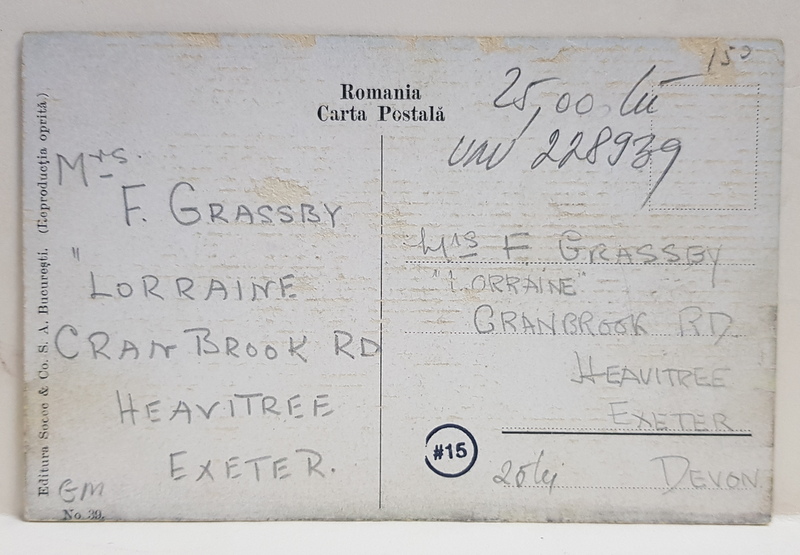 150
Romania
Carta Postală
25,00 lei
228939
Mrs.
F. GRASSBY
"LORRAINE
CRANBROOK RD
HEAVITREE
EXETER.
Mrs F GRASSBY
"LORRAINE"
CRANBROOK RD
HEAVITREE
EXETER
DEVON
#15
25 lei
GM
No 39.
Editura Socec & Co. S. A. Bucureşti. (Reproducţia oprită.)